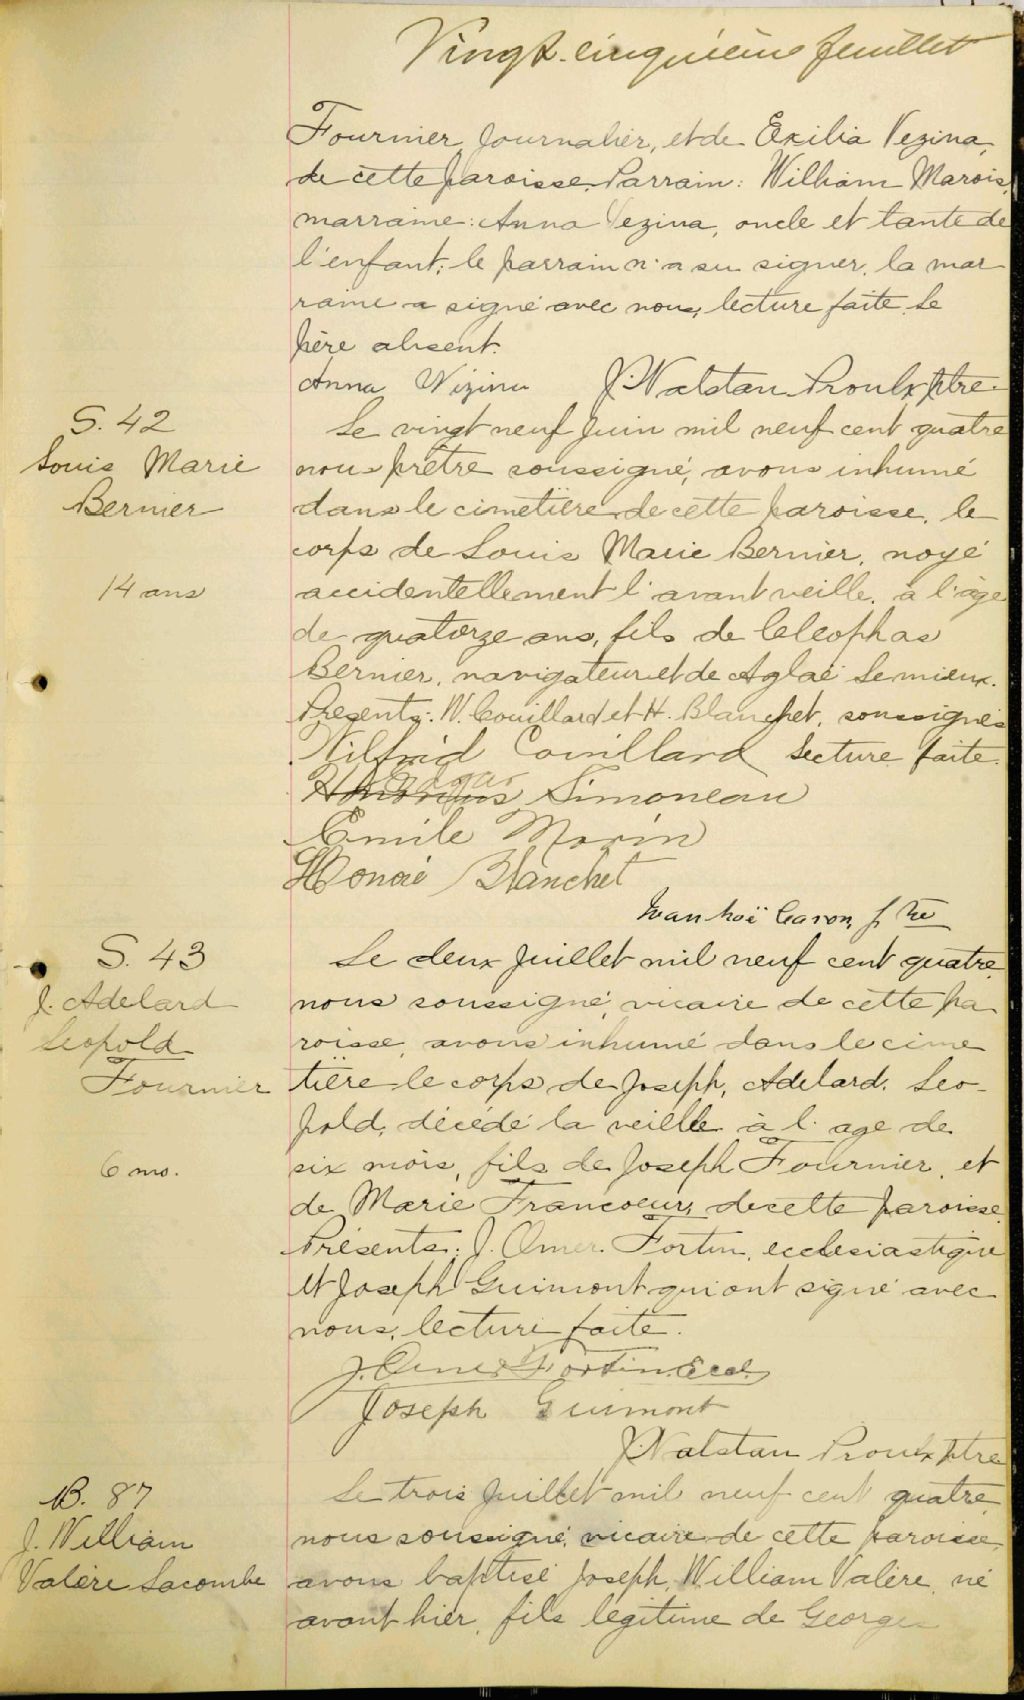 Vingt-cinquième feuillet
Fournier, journalier, et de Exilia Vezina,
de cette paroisse. Parrain: William Marois,
marraine: Anna Vezina, oncle et tante de
l'enfant; le parrain n'a su signer, la mar
raine a signé avec nous, lecture faite. Le
père absent.
Anna Vézina J. Nalstan Proulx ptre.
S. 42
Louis Marie
Bernier
14 ans
Le vingt neuf Juin mil neuf cent quatre
nous prêtre soussigné, avons inhumé
dans le cimetière de cette paroisse, le
corps de Louis Marie Bernier, noyé
accidentellement l'avant veille, à l'âge
de quatorze ans, fils de Cleophas
Bernier, navigateur et de Aglaé Lemieux.
Présents: W. Couillard et H. Blanchet, soussignés
Wilfrid Couillard Lecture faite.
Edgar Simoneau
Emile Morin
Honoré Blanchet
Ivanhoë Caron, ptre
S. 43
J. Adelard
Leopold
Fournier
6 mo.
Le deux Juillet mil neuf cent quatre,
nous soussigné, vicaire de cette pa
roisse, avons inhumé dans le cime
tière le corps de Joseph, Adelard, Leo-
pold, décédé la veille à l'age de
six mois, fils de Joseph Fournier, et
de Marie Francoeur, de cette paroisse.
Présents: J. Omer Fortin, ecclesiastique
et Joseph Guimont qui ont signé avec
nous, lecture faite.
J. Omer Fortin. Eccl.
Joseph Guimont
J. Nalstan Proulx ptre
B. 87
J. William
Valère Lacombe
Le trois Juillet mil neuf cent quatre,
nous soussigné, vicaire de cette paroisse,
avons baptisé Joseph, William Valère, né
avant hier, fils légitime de Georges